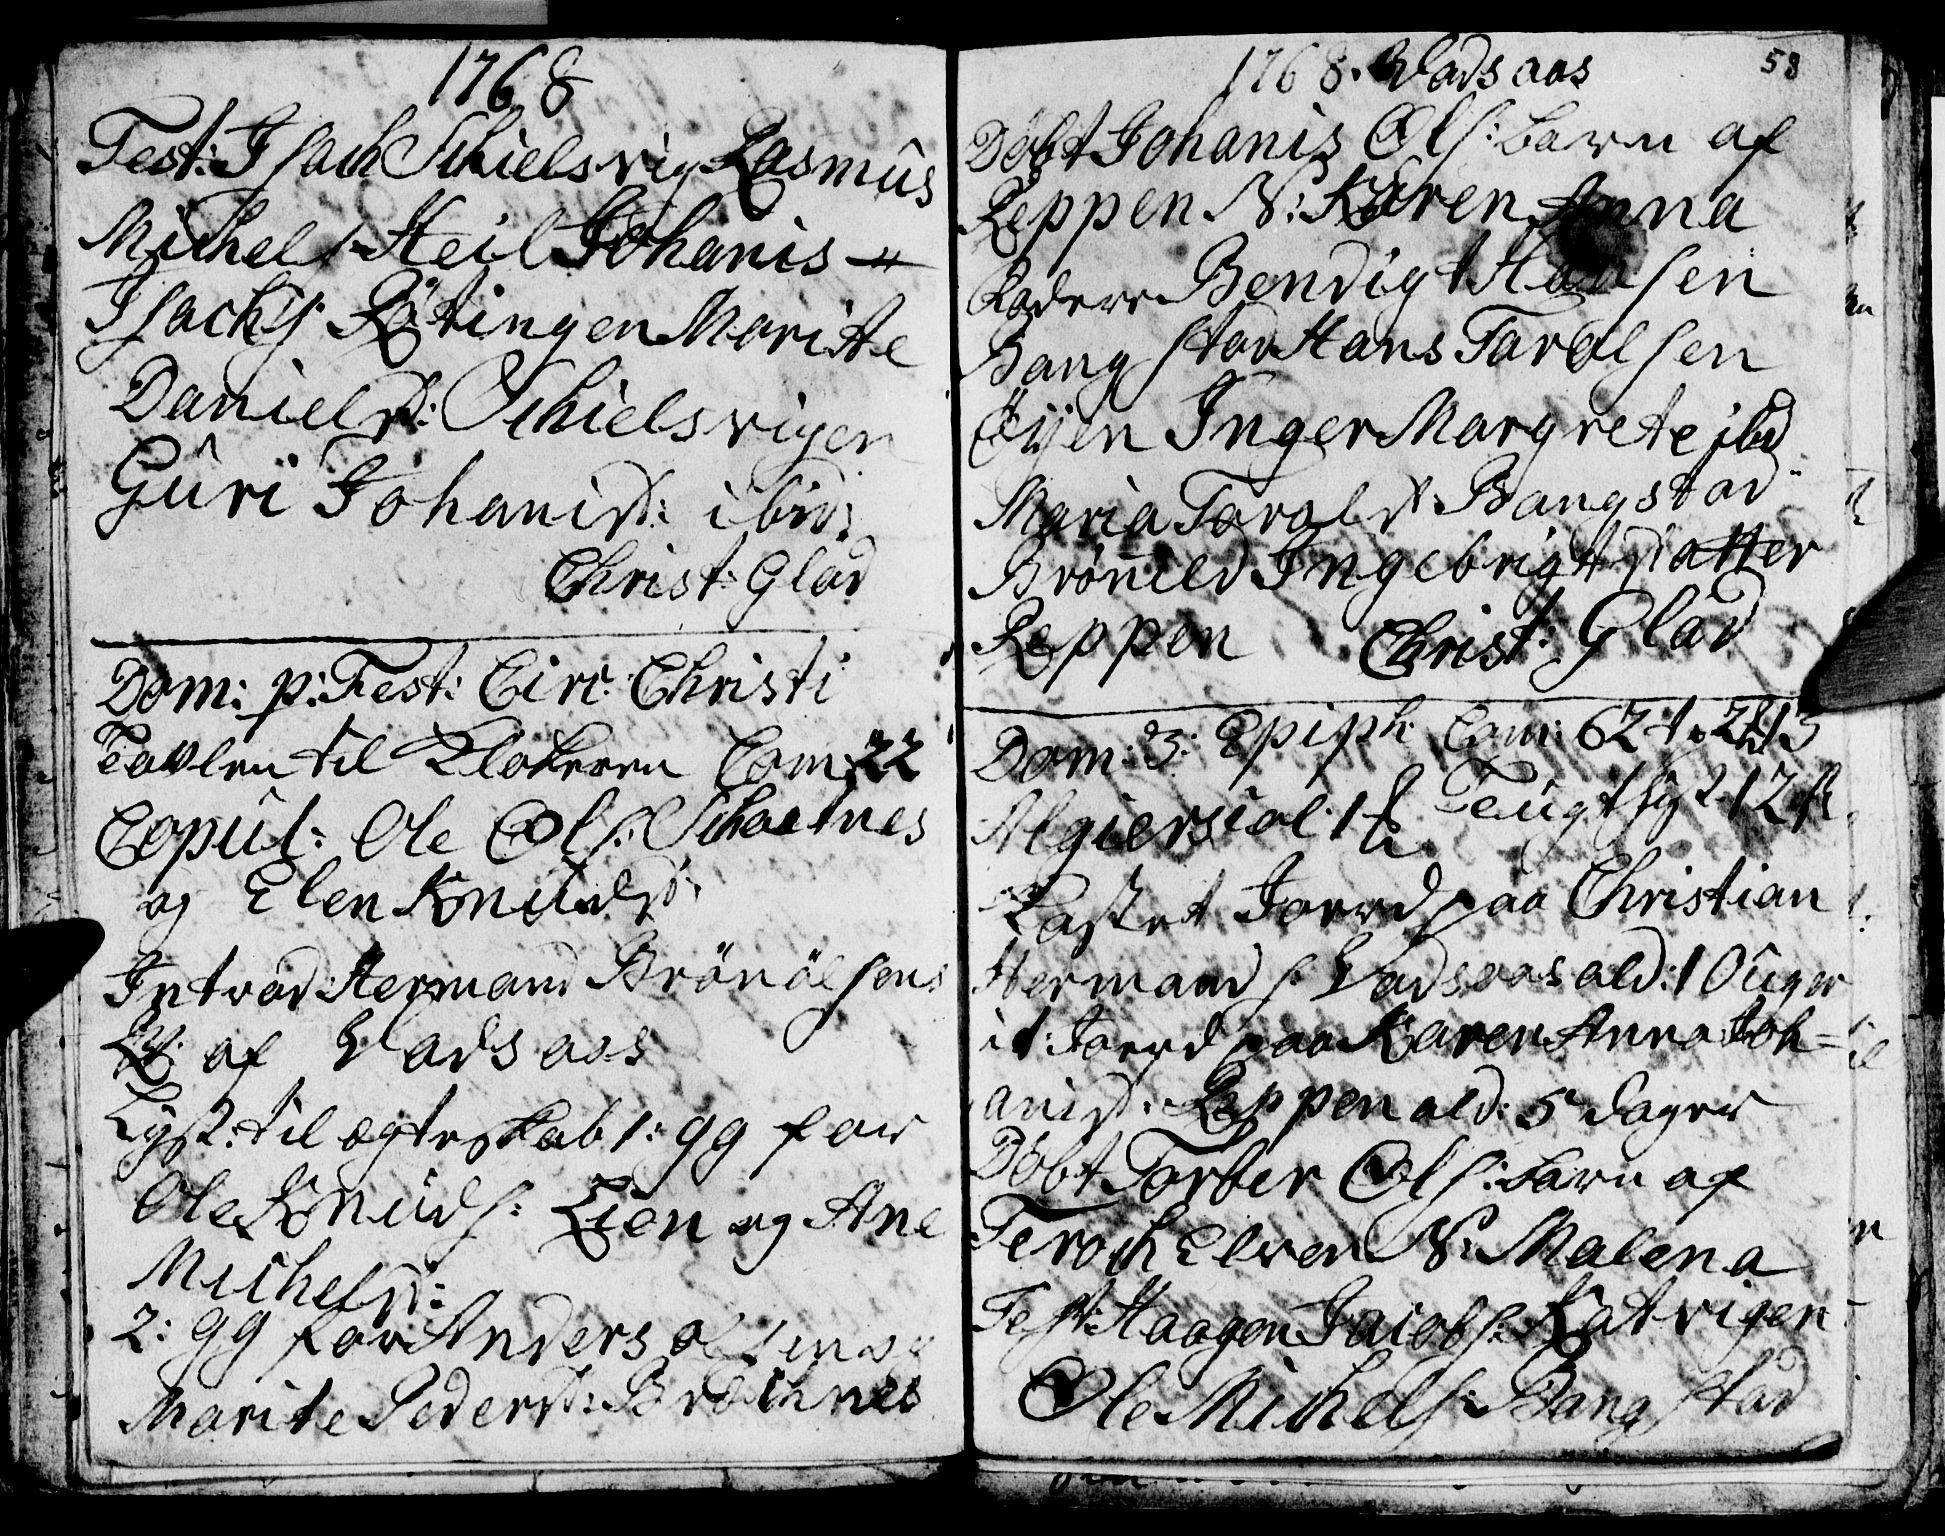 1768
Test: Isach Schielsvig Rasmus
Michels: Heil Johanis
Isachs: Røtingen Marite
Danielsd: Schielsvigen
Guri Johanisd: ibid:
Christ: Glad
Dom: p: Fest: Circ: Christi
Tavlen til Klokeren Com: 22
Copul: Ole Ols: Schaetnes
og Elen Knudsd:
Introd: Hermand Brönölsens
K: af Vadsaas
Lyst: til ægteskab 1: gg for
Ole Knuds: Lien og Ane
Michelsd:
2: gg for Anders
Marite Pedersd: Bræchnes
1768. Vadsaas
58
Döbt Johanis Ols: barn af
Reppen N: Karen Anna
Fadere Bendigt Hansen
Bangstad Hans Tarolsen
Öyen Inger Margrete ibd
Maria Tarolsd Bangstad
Brönild Ingebrigtdatter
Reppen Christ: Glad
Dom: 3: Epiph: Com: 62 t.
Algiersiol: 1
Kastet Jord paa Christian
Hermands: Vadsaas ald: 10 uger
it: Jord paa Karen Anna Joh=
anisd: Reppen ald: 5 dager
Döbt Torber Ols: barn af
Teroch Elven N: Malena
Test: Haagen Jacobs: Katvigen
Ole Michels: Bangstad